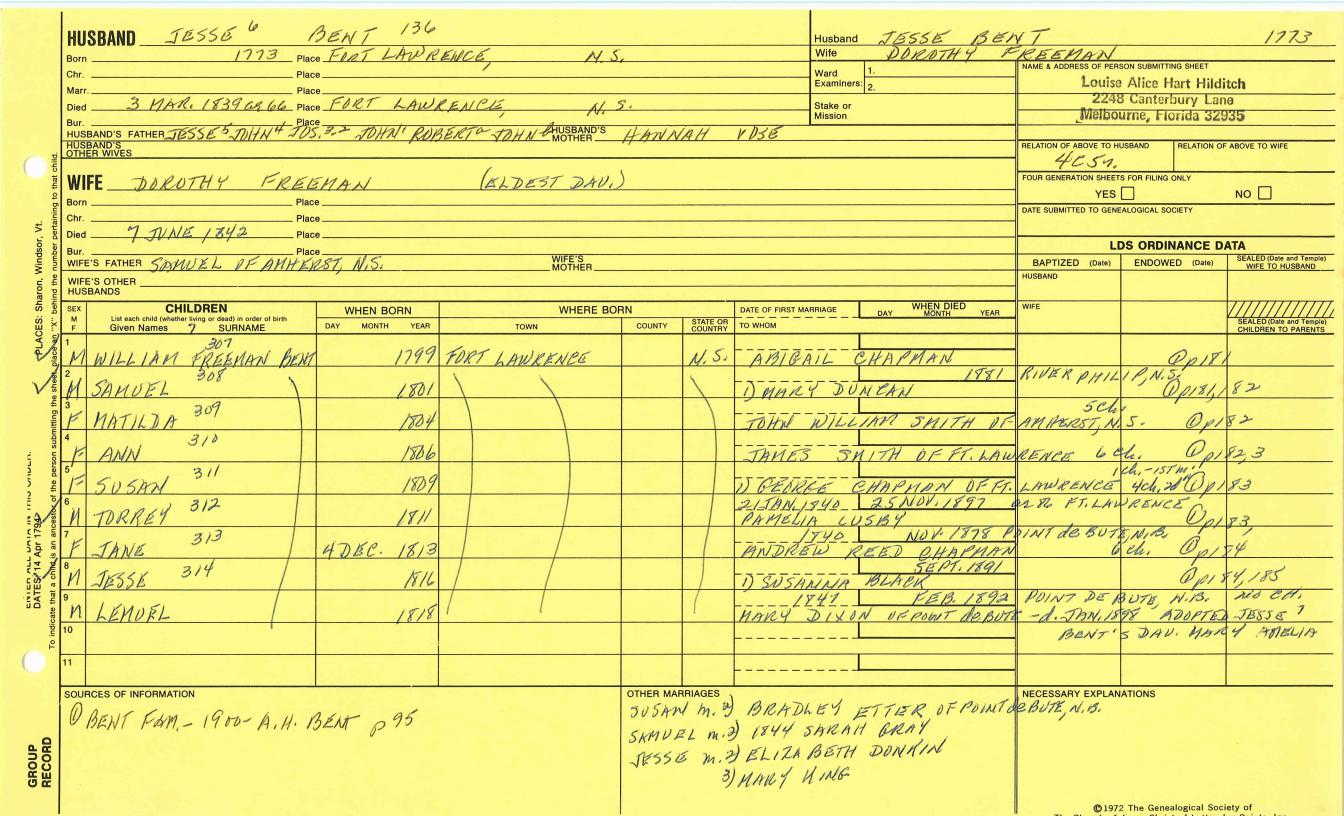 HUSBAND JESSE 6 BENT 136
Born 1773 Place FORT LAWRENCE, N.S.
Chr. Place
Marr. Place
Died 3 MAR. 1839 ae 66 Place FORT LAWRENCE, N.S.
Bur. Place
HUSBAND'S FATHER JESSE 5 JOHN 4 JOS. 3,2 JOHN 1 ROBERT a JOHN HUSBAND'S MOTHER HANNAH VOSE
HUSBAND'S OTHER WIVES
Husband JESSE BENT 1773
Wife DOROTHY FREEMAN
Ward Examiners: 1.
2.
Stake or Mission
NAME & ADDRESS OF PERSON SUBMITTING SHEET
Louise Alice Hart Hilditch
2248 Canterbury Lane
Melbourne, Florida 32935
RELATION OF ABOVE TO HUSBAND RELATION OF ABOVE TO WIFE
4C5r.
FOUR GENERATION SHEETS FOR FILING ONLY
YES NO
DATE SUBMITTED TO GENEALOGICAL SOCIETY
WIFE DOROTHY FREEMAN (ELDEST DAU.)
Born Place
Chr. Place
Died 7 JUNE 1842 Place
Bur. Place
WIFE'S FATHER SAMUEL OF AMHERST, N.S. WIFE'S MOTHER
WIFE'S OTHER HUSBANDS
LDS ORDINANCE DATA
BAPTIZED (Date) ENDOWED (Date) SEALED (Date and Temple) WIFE TO HUSBAND
HUSBAND
WIFE
SEALED (Date and Temple) CHILDREN TO PARENTS
SEX M F CHILDREN WHEN BORN WHERE BORN DATE OF FIRST MARRIAGE WHEN DIED
List each child (whether living or dead) in order of birth
Given Names 7 SURNAME DAY MONTH YEAR TOWN COUNTY STATE OR COUNTRY TO WHOM DAY MONTH YEAR
1 307
M WILLIAM FREEMAN BENT 1799 FORT LAWRENCE N.S. ABIGAIL CHAPMAN ① p181
2 308 1881 RIVER PHILIP, N.S.
M SAMUEL 1801 1) MARY DUNCAN ① p181,182
3 309 5 ch.
F MATILDA 1804 JOHN WILLIAM SMITH OF AMHERST, N.S. ① p182
4 310
F ANN 1806 JAMES SMITH OF FT. LAWRENCE 6 ch. ① p182,3
5 311 1 ch. - 1ST m.
F SUSAN 1809 1) GEORGE CHAPMAN OF FT. LAWRENCE 4 ch, 2d ① p183
6 312 21 JAN. 1840 25 NOV. 1897 ae 86 FT. LAWRENCE
M TORREY 1811 PAMELIA LUSBY ① p183,
7 313 1840 NOV. 1878 POINT de BUTE, N.B.
F JANE 4 DEC. 1813 ANDREW REED CHAPMAN 6 ch. ① p184
8 314 SEPT. 1891
M JESSE 1816 1) SUSANNA BLACK ① p184,185
9 1847 FEB. 1892 POINT DE BUTE, N.B. NO CH.
M LEMUEL 1818 MARY DIXON OF POINT de BUTE - d. JAN. 1898 ADOPTED JESSE 7
10 BENT'S DAU. MARY AMELIA
11
SOURCES OF INFORMATION
① BENT FAM. - 1900 - A.H. BENT p 95
OTHER MARRIAGES
SUSAN m. 2) BRADLEY ETTER OF POINT de BUTE, N.B.
SAMUEL m. 2) 1844 SARAH GRAY
JESSE m. 2) ELIZABETH DONKIN
3) MARY KING
NECESSARY EXPLANATIONS
©1972 The Genealogical Society of
PLACES: Sharon, Windsor, Vt.
DATES: 14 Apr 1794
To indicate that a child is an ancestor of the person submitting the sheet, place an "X" behind the number pertaining to that child.
GROUP RECORD